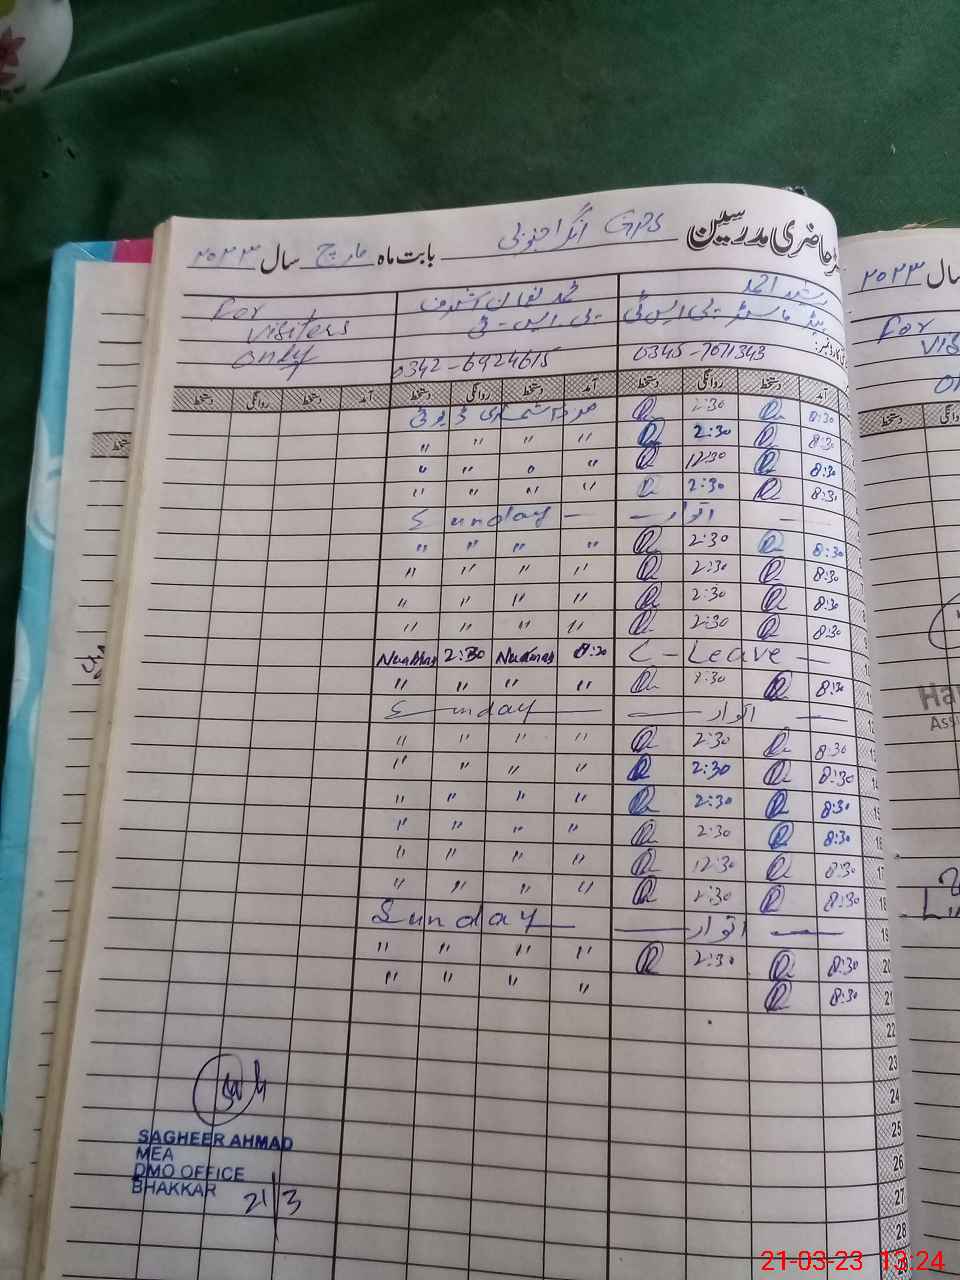 حاضری مدرسین GPS انگرا جنوبی بابت ماہ مارچ سال ۲۰۲۳
رشید احمد محمد نعمان اشرف For
ہیڈ ماسٹر - پی ایس ٹی پی - ایس - ٹی visiters
0345-7071343 0342-6924615 only
آمد دستخط روانگی دستخط آمد دستخط روانگی دستخط آمد دستخط روانگی دستخط
8:30 2:30 مردم شماری ڈیوٹی
8:30 2:30 " " " "
8:30 12:30 " " " "
8:30 2:30 " " " "
— اتوار — Sunday —
8:30 2:30 " " " "
8:30 2:30 " " " "
8:30 2:30 " " " "
8:30 2:30 " " " "
C - Leave — 8:30 2:30
8:30 2:30 " " " "
— اتوار — Sunday —
8:30 2:30 " " " " 13
8:30 2:30 " " " " 14
8:30 2:30 " " " " 15
8:30 2:30 " " " " 16
8:30 12:30 " " " " 17
8:30 2:30 " " " " 18
— اتوار — Sunday — 19
8:30 2:30 " " " " 20
8:30 " " " " 21
22
23
24
25
26
27
28
SAGHEER AHMAD
MEA
DMO OFFICE
BHAKKAR
21/3
سال ۲۰۲۳
For
21-03-23 13:24